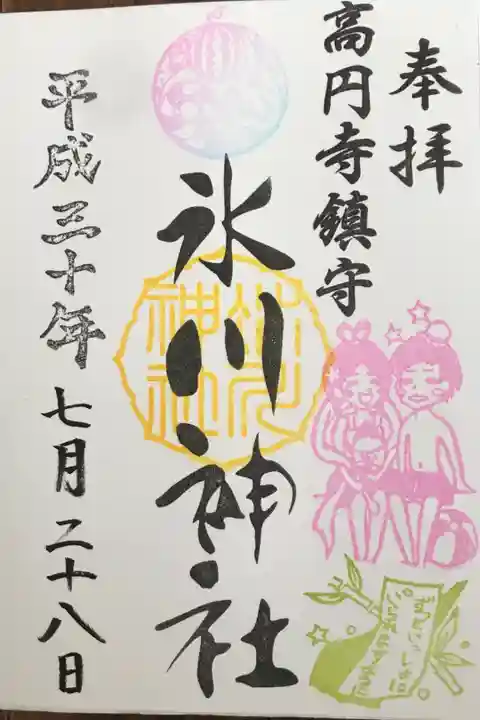 奉拝
高円寺鎮守
氷川神社
氷川神社
平成三十年七月二十八日